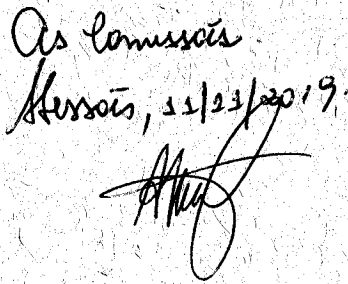 Às Comissões.
Sessões, 11/11/2019.